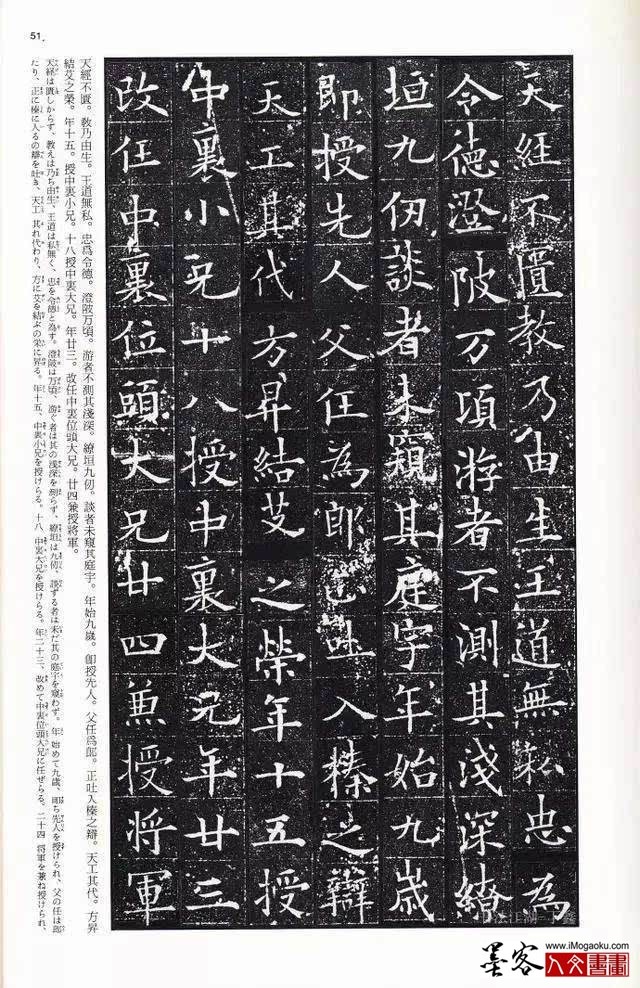 天經不匱教乃由生王道無私忠為
令德澄陂万頃游者不測其淺深繚
垣九仞談者未窺其庭宇年始九歲
即授先人父任為郎正吐入榛之辯
天工其代方昇結艾之榮年十五授
中裏小兄十八授中裏大兄年廿三
改任中裏位頭大兄廿四兼授將軍
天經不匱。敎乃由生。王道無私。忠爲令德。澄陂万頃。游者不測其淺深。繚垣九仞。談者未窺其庭宇。年始九歲。卽授先人。父任爲郞。正吐入榛之辯。天工其代。方昇
結艾之榮。年十五。授中裏小兄。十八授中裏大兄。年廿三。改任中裏位頭大兄。廿四兼授將軍。
天経は匱しからず、教えは乃ち由生、王道は私無く、忠を令德と為す。澄陂は万頃、游ぐ者は其の浅深を測らず、繚垣は九仞、談ずる者は未だ其の庭宇を窺わず。年 始めて九歳、即ち先人を授けられ、父の任は郎
たり、正に榛に入るの辯を吐き、天工 其れ代わり、方に艾を結ぶの栄に昇る。年十五、中裏小兄を授けらる。十八 中裏大兄を授けらる。年二十三、改めて中裏位頭大兄に任ぜらる。二十四 将軍を兼ね授けられ、
51
墨客 www.iMogaoku.com
人文書畫